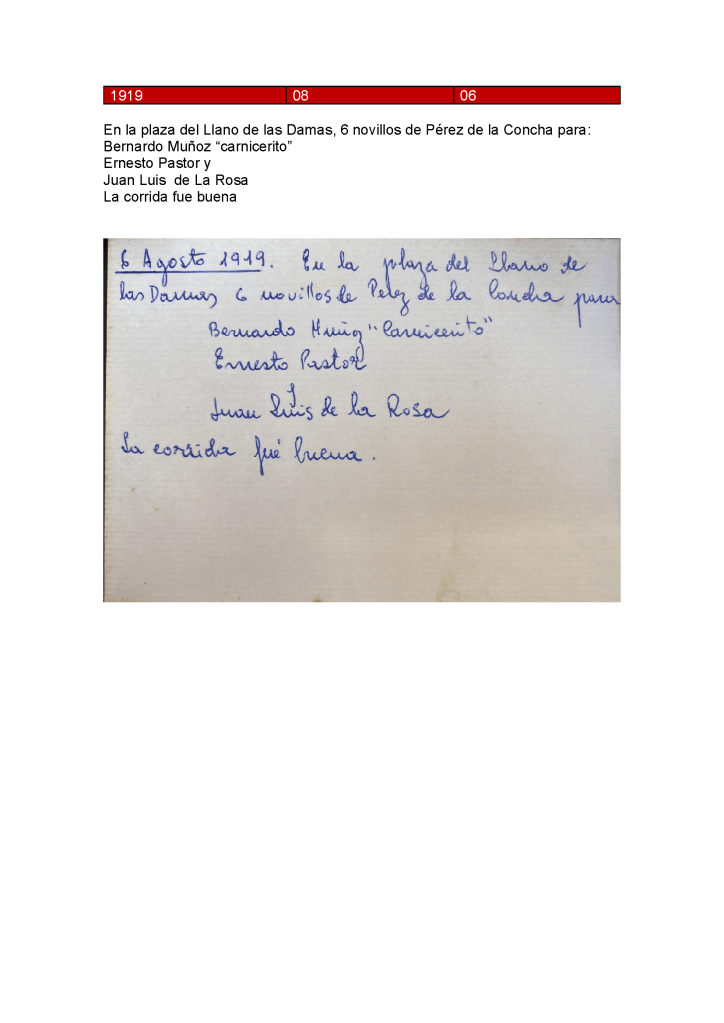 1919 08 06
En la plaza del Llano de las Damas, 6 novillos de Pérez de la Concha para:
Bernardo Muñoz “carnicerito”
Ernesto Pastor y
Juan Luis de La Rosa
La corrida fue buena
6 Agosto 1919. En la plaza del Llano de
las Damas 6 novillos de Perez de la Concha para
Bernardo Muñoz "Carnicerito"
Ernesto Pastor
y
Juan Luis de la Rosa
La corrida fué buena.